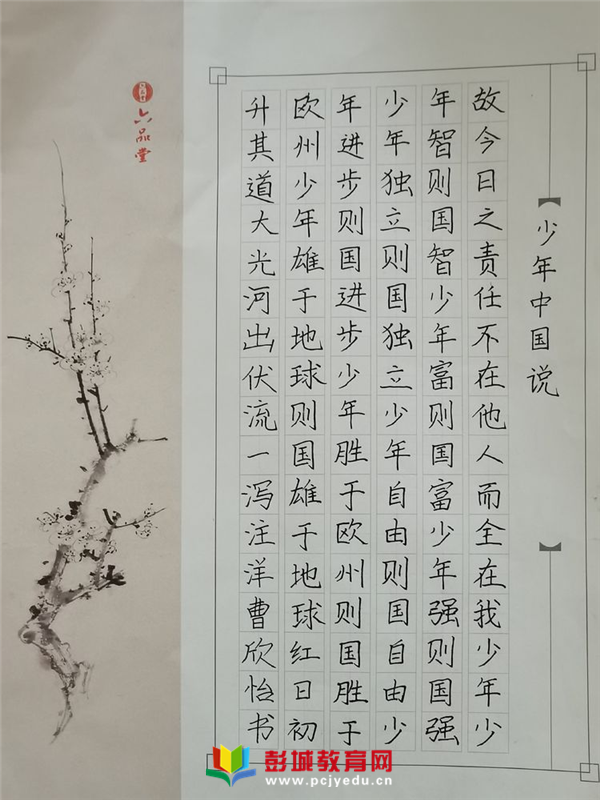 【少年中国说】
故今日之责任不在他人而全在我少年少
年智则国智少年富则国富少年强则国强
少年独立则国独立少年自由则国自由少
年进步则国进步少年胜于欧州则国胜于
欧州少年雄于地球则国雄于地球红日初
升其道大光河出伏流一泻注洋曹欣怡书
六品堂
彭城教育网
www.pcjyedu.cn